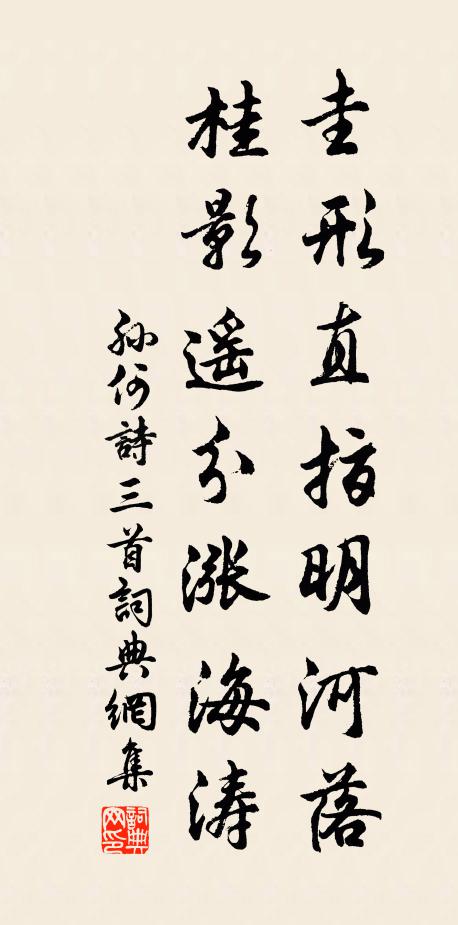 圭形直指明河落
桂影遥分漲海濤
孫何詩三首詞典網集
詞典網印